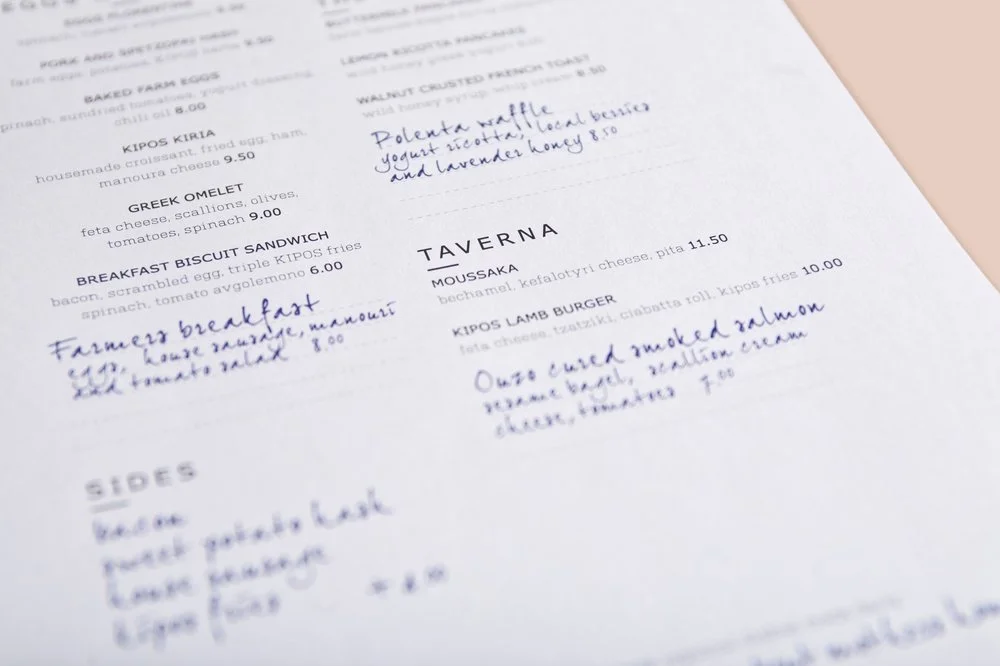 EGGS
EGGS FLORENTINE
PORK AND SPETZOFAI HASH
farm eggs, potatoes,
BAKED FARM EGGS
spinach, sundried tomatoes, yogurt dressing,
chili oil 8.00
KIPOS KIRIA
housemade croissant, fried egg, ham,
manoura cheese 9.50
GREEK OMELET
feta cheese, scallions, olives,
tomatoes, spinach 9.00
BREAKFAST BISCUIT SANDWICH
bacon, scrambled egg, triple KIPOS fries
spinach, tomato avgolemono 6.00
Farmers breakfast
eggs, house sausage, manouri
and tomato salad 8.00
SIDES
bacon
sweet potato hash
house sausage
kipos fries
BUTTERMILK PANCAKES
LEMON RICOTTA PANCAKES
wild honey yogurt
WALNUT CRUSTED FRENCH TOAST
wild honey syrup, whip cream 8.50
Polenta waffle
yogurt ricotta, local berries
and lavender honey 8.50
TAVERNA
MOUSSAKA
bechamel, kefalotyri cheese, pita 11.50
KIPOS LAMB BURGER
feta cheese, tzatziki, ciabatta roll, kipos fries 10.00
Ouzo cured smoked salmon
sesame bagel, scallion cream
cheese, tomatoes 7.00